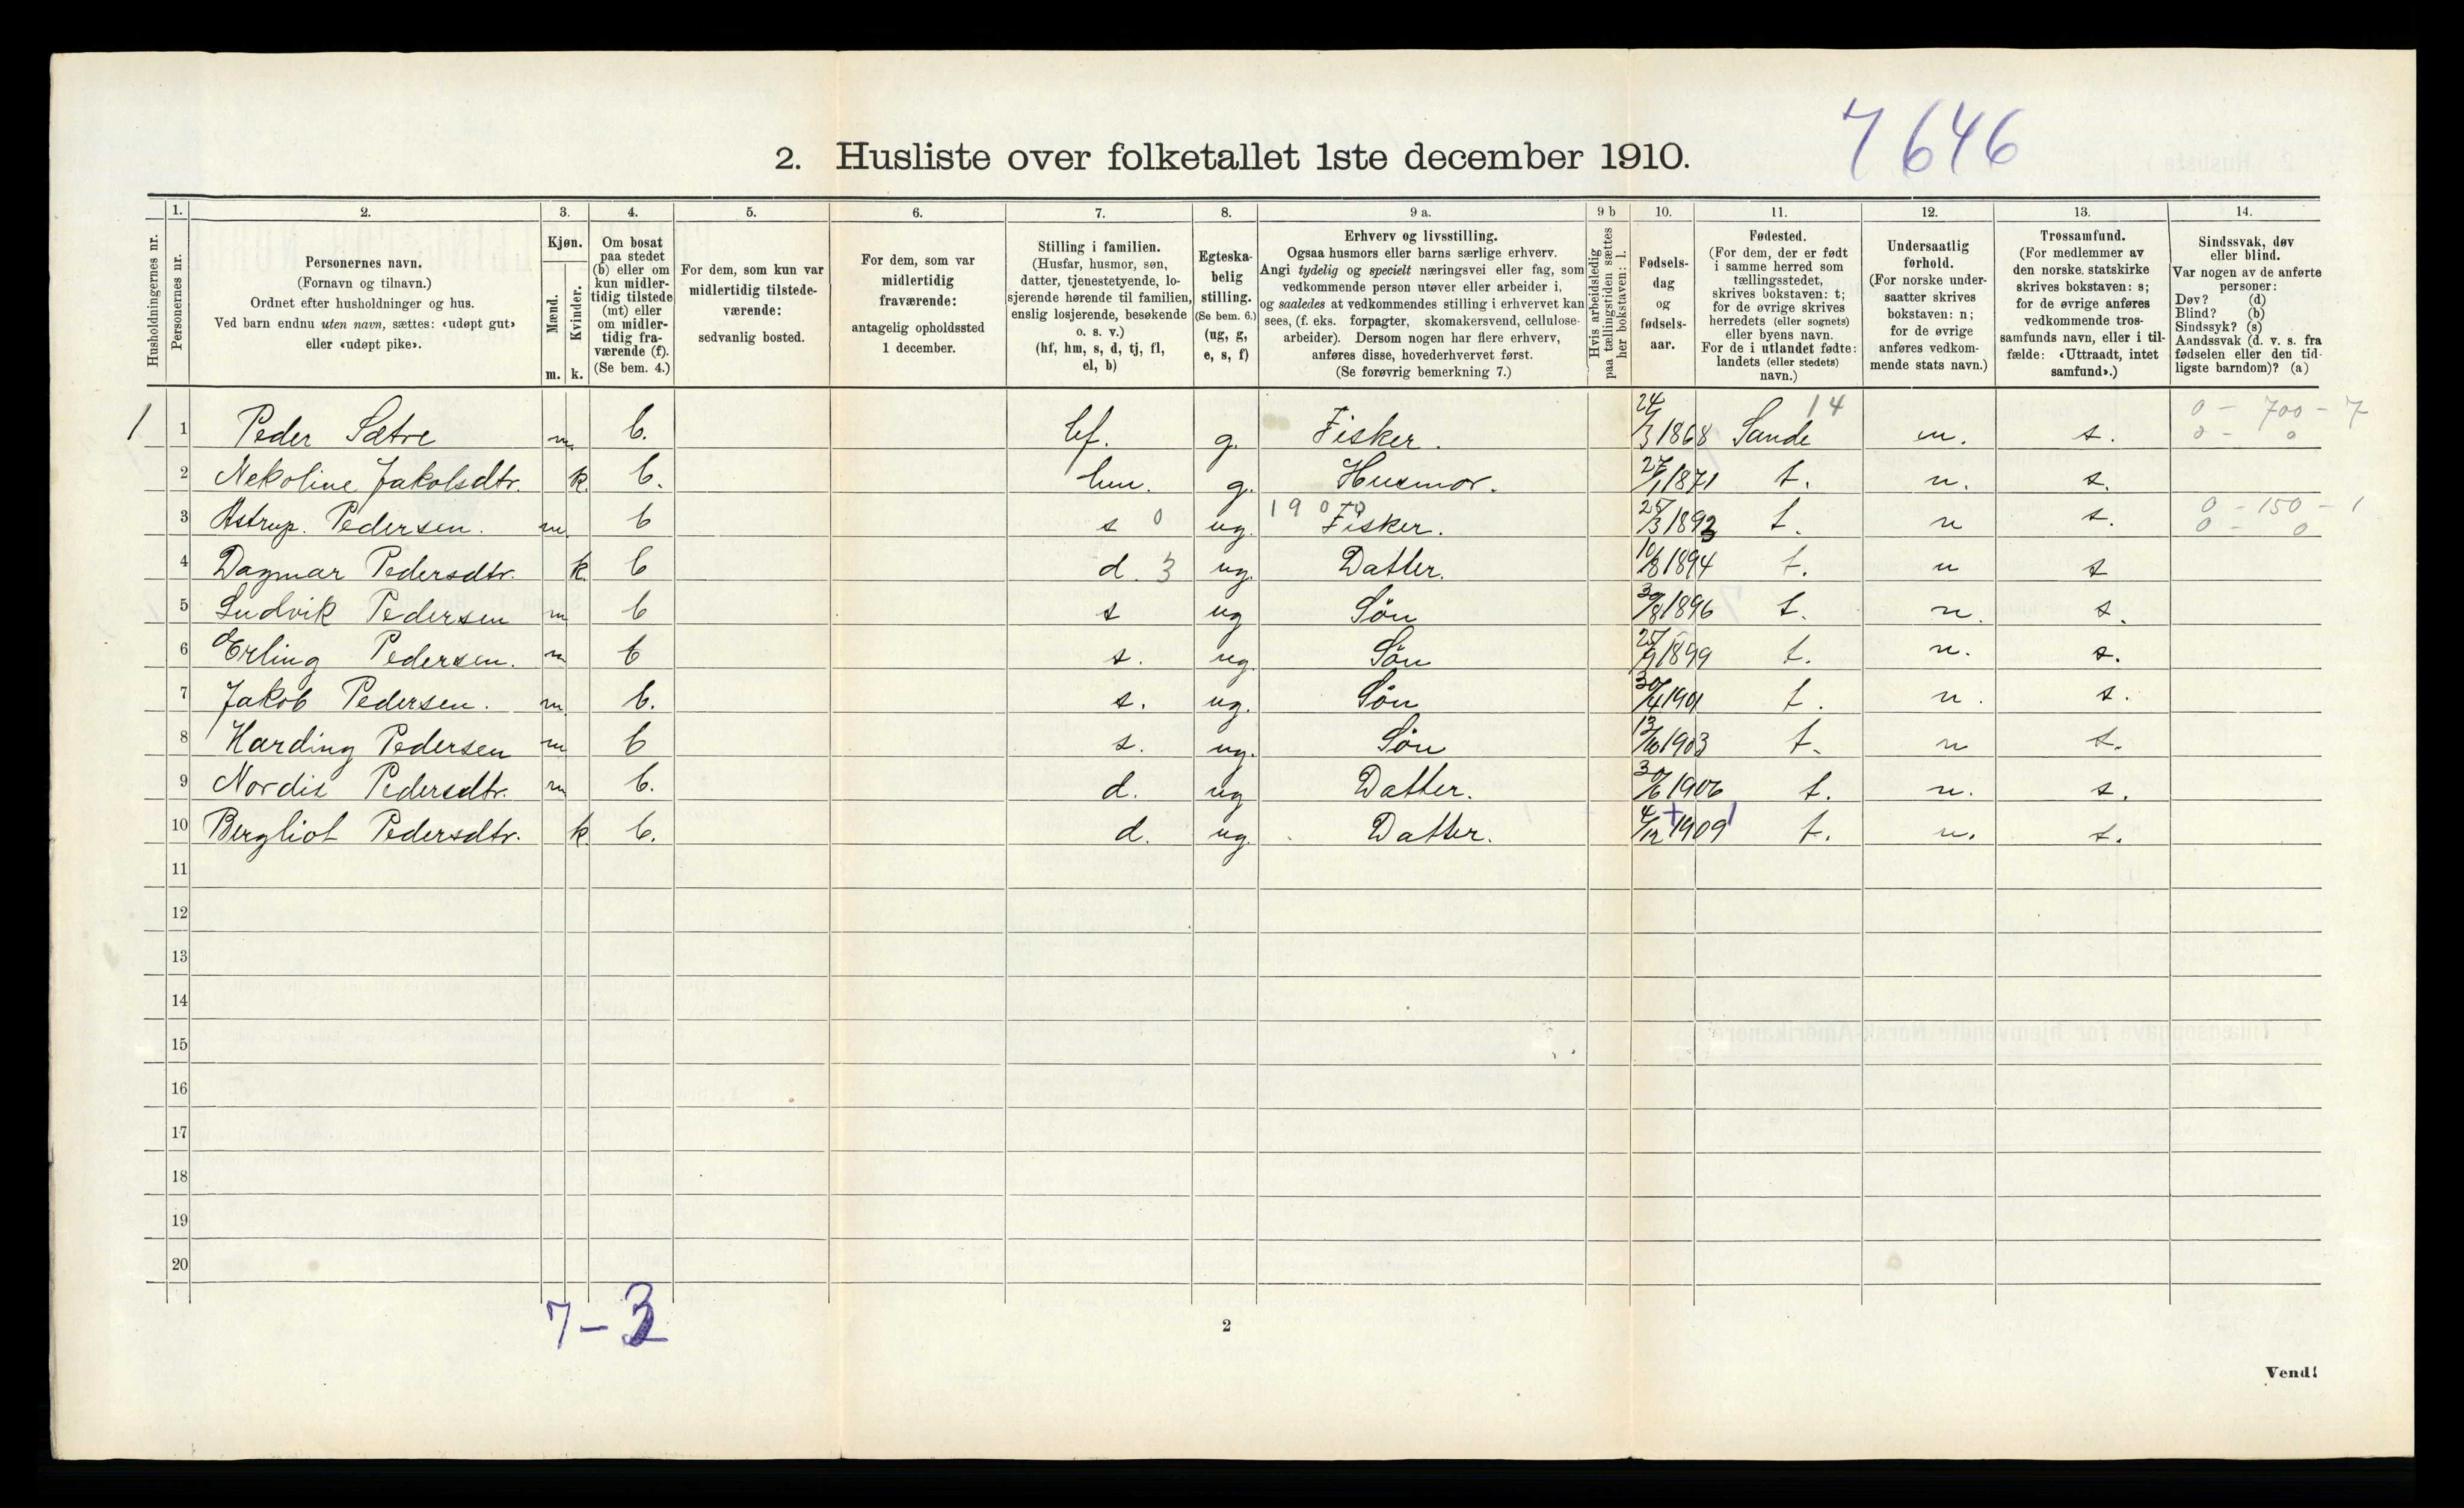 7646
2. Husliste over folketallet 1ste december 1910.
1. 2. 3. 4. 5. 6. 7. 8. 9 a. 9 b 10. 11. 12. 13. 14.
Husholdningernes nr.
Personernes nr.
Personernes navn.
(Fornavn og tilnavn.)
Ordnet efter husholdninger og hus.
Ved barn endnu uten navn, sættes: «udøpt gut»
eller «udøpt pike».
Kjøn.
Mænd.
Kvinder.
m. k.
Om bosat
paa stedet
(b) eller om
kun midler-
tidig tilstede
(mt) eller
om midler-
tidig fra-
værende (f).
(Se bem. 4.)
For dem, som kun var
midlertidig tilstede-
værende:
sedvanlig bosted.
For dem, som var
midlertidig
fraværende:
antagelig opholdssted
1 december.
Stilling i familien.
(Husfar, husmor, søn,
datter, tjenestetyende, lo-
sjerende hørende til familien,
enslig losjerende, besøkende
o. s. v.)
(hf, hm, s, d, tj, fl,
el, b)
Egteska-
belig
stilling.
(Se bem. 6.)
(ug, g,
e, s, f)
Erhverv og livsstilling.
Ogsaa husmors eller barns særlige erhverv.
Angi tydelig og specielt næringsvei eller fag, som
vedkommende person utøver eller arbeider i,
og saaledes at vedkommendes stilling i erhvervet kan
sees, (f. eks. forpagter, skomakersvend, cellulose-
arbeider). Dersom nogen har flere erhverv,
anføres disse, hovederhvervet først.
(Se forøvrig bemerkning 7.)
Hvis arbeidsledig
paa tællingstiden sættes
her bokstaven: l.
Fødsels-
dag
og
fødsels-
aar.
Fødested.
(For dem, der er født
i samme herred som
tællingsstedet,
skrives bokstaven: t;
for de øvrige skrives
herredets (eller sognets)
eller byens navn.
For de i utlandet fødte:
landets (eller stedets)
navn.)
Undersaatlig
forhold.
(For norske under-
saatter skrives
bokstaven: n;
for de øvrige
anføres vedkom-
mende stats navn.)
Trossamfund.
(For medlemmer av
den norske statskirke
skrives bokstaven: s;
for de øvrige anføres
vedkommende tros-
samfunds navn, eller i til-
fælde: «Uttraadt, intet
samfund».)
Sindssvak, døv
eller blind.
Var nogen av de anførte
personer:
Døv? (d)
Blind? (b)
Sindssyk? (s)
Aandssvak (d. v. s. fra
fødselen eller den tid-
ligste barndom)? (a)
14 0 - 700 - 7
1 1 Peder Sætre m. b. hf. g. Fisker. 24/3 1868 Sande n. s. 0 - 0
2 Nekoline Jakobsdtr. k. b. hm. g. Husmor. 27/1 1871 t. n. s.
1900 0 - 150 - 1
3 Astrup. Pedersen. m. b s 0 ug. Fisker. 25/3 1893 t. n s. 0 - 0
4 Dagmar Pedersdtr. k. b d. 3 ug. Datter. 10/8 1894 t. n s
5 Ludvik Pedersen m b s ug Søn 30/8 1896 t. n. s.
6 Erling Pedersen. m b s. ug. Søn 25/9 1899 t. n. s.
7 Jakob Pedersen. m. b. s. ug. Søn 30/4 1901 t. n. s.
8 Harding Pedersen m b s. ug. Søn 13/10 1903 t. n s.
9 Nordis Pedersdtr. m b. d. ug Datter. 30/6 1906 t. n. s.
10 Bergliot Pedersdtr. k. b. d. ug. Datter. 4/12 + 1909 1 t. n. s.
11
12
13
14
15
16
17
18
19
20
7 - 3
2
Vend!